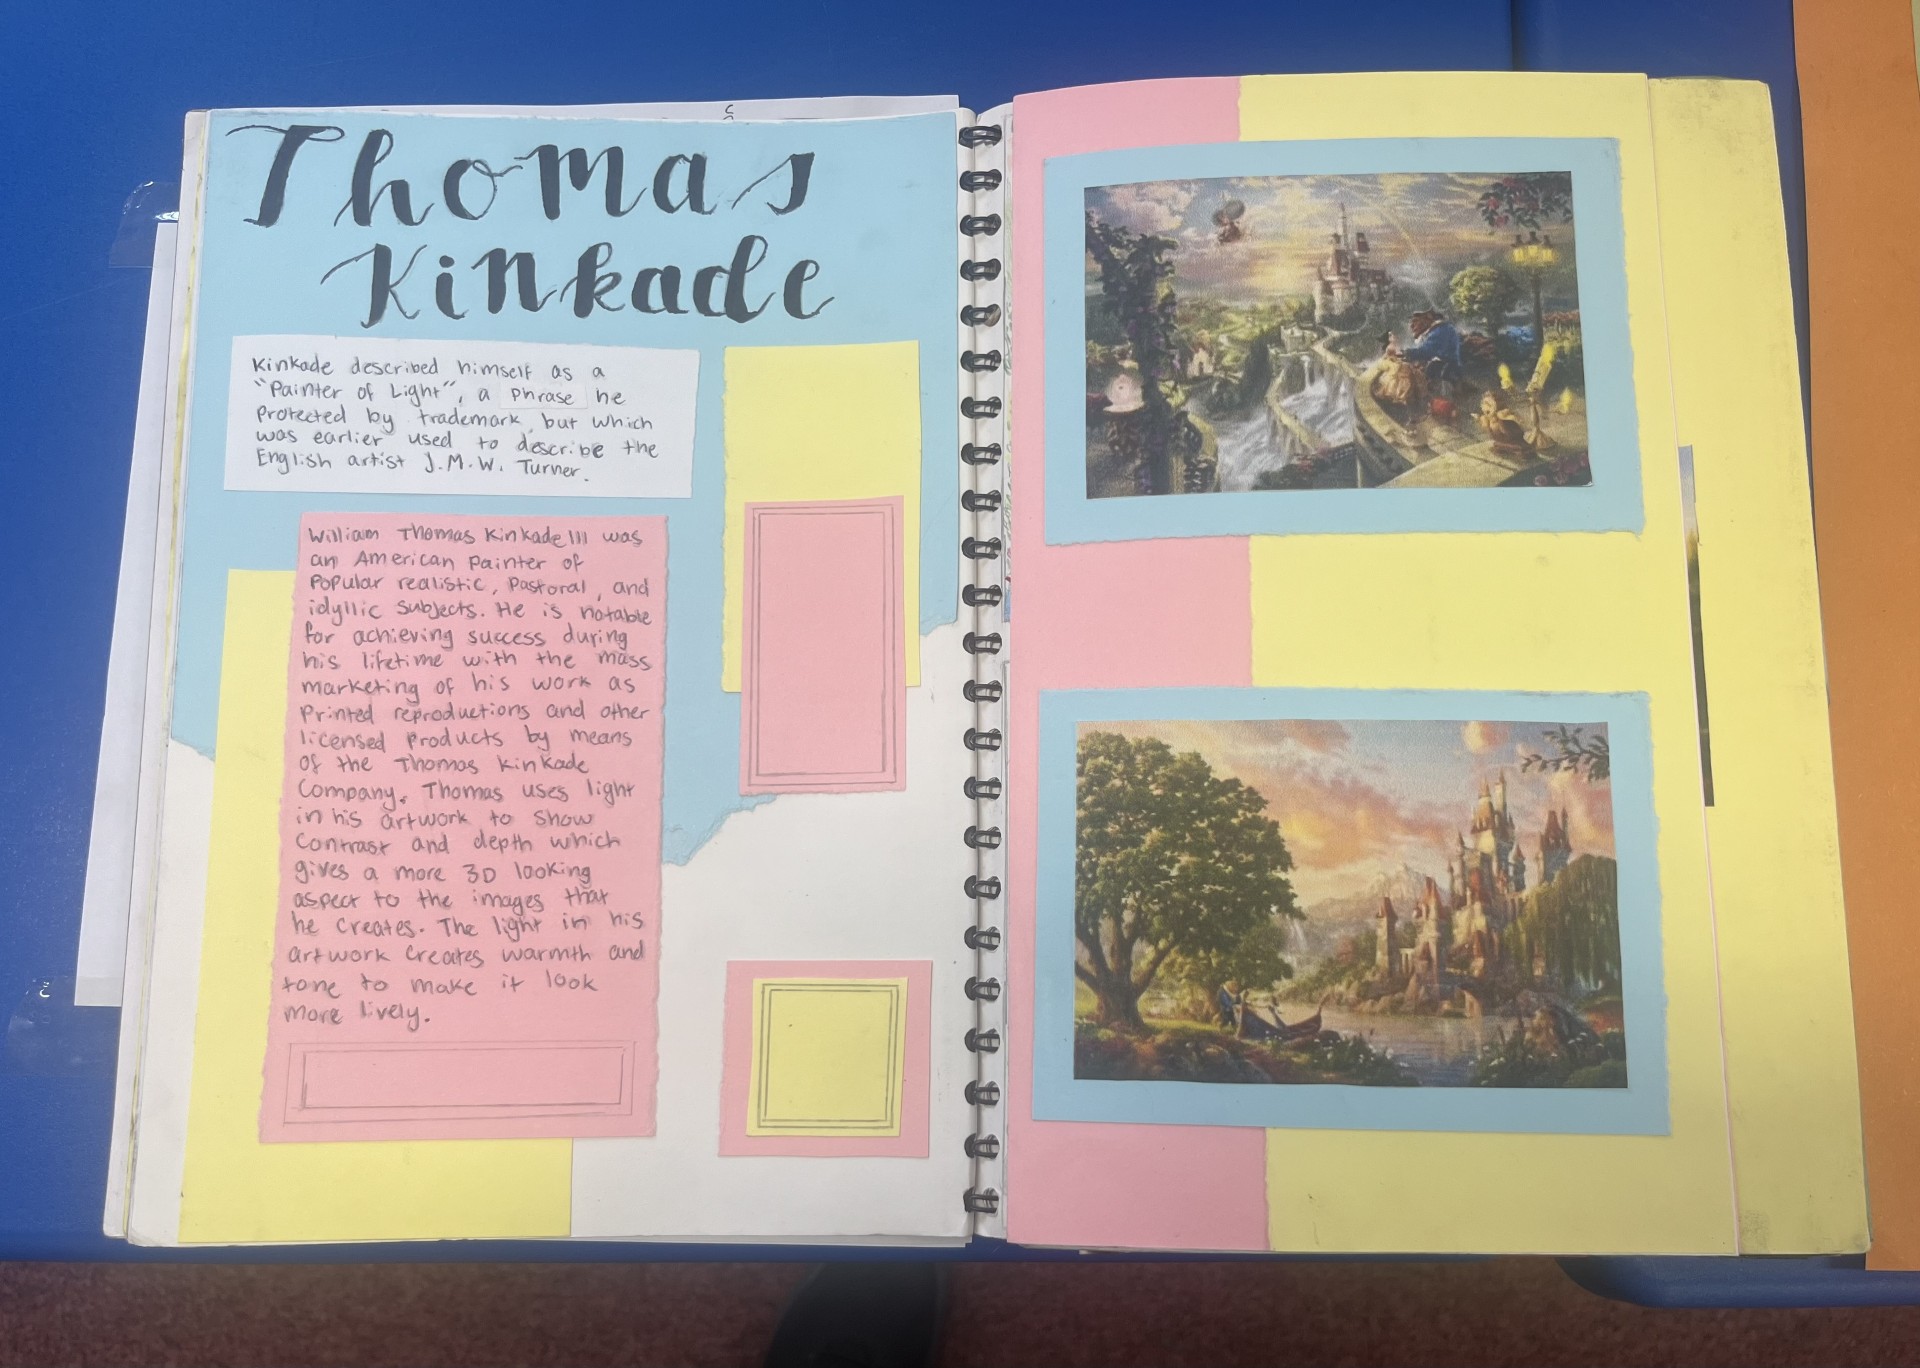 Thomas
Kinkade
Kinkade described himself as a
"Painter of Light", a phrase he
protected by trademark, but which
was earlier used to describe the
English artist J.M.W. Turner.
William Thomas Kinkade III was
an American painter of
popular realistic, pastoral, and
idyllic subjects. He is notable
for achieving success during
his lifetime with the mass
marketing of his work as
printed reproductions and other
licensed products by means
of the Thomas Kinkade
Company. Thomas uses light
in his artwork to show
contrast and depth which
gives a more 3D looking
aspect to the images that
he creates. The light in his
artwork creates warmth and
tone to make it look
more lively.